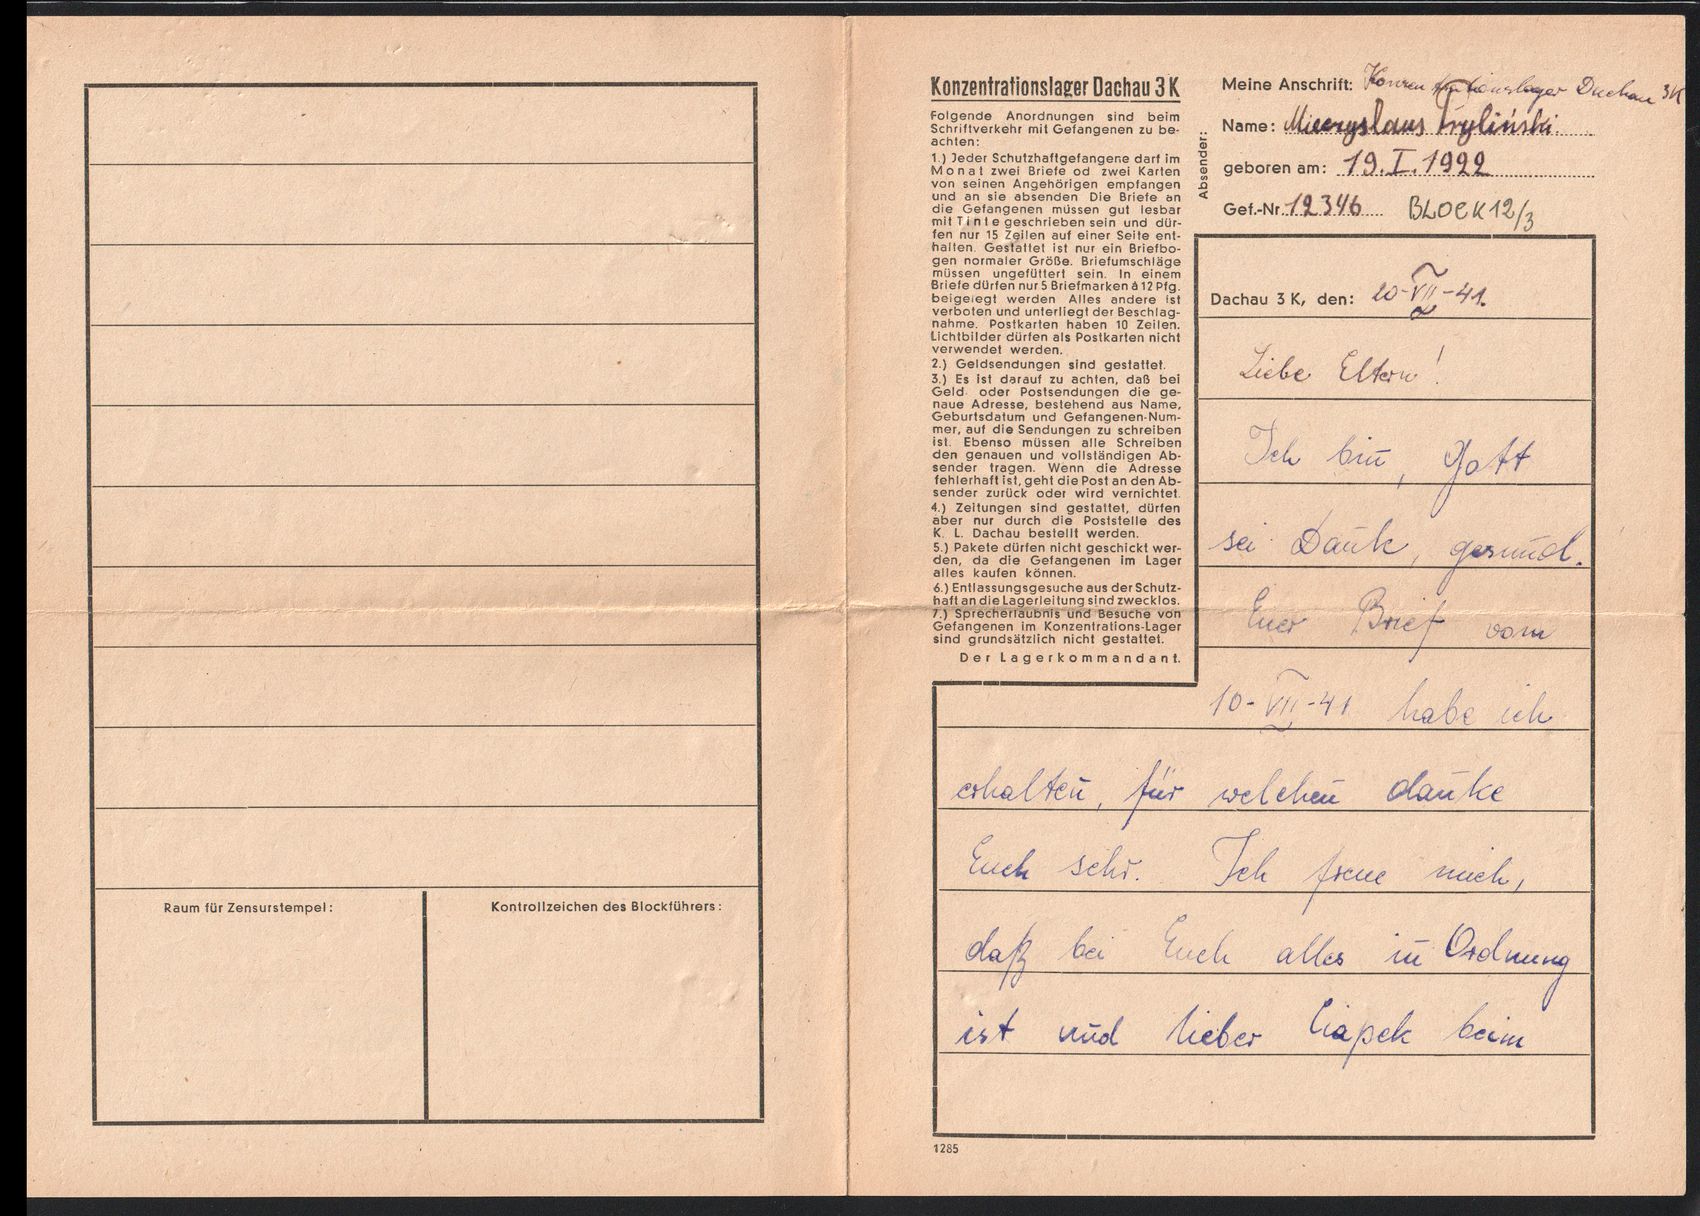 Raum für Zensurstempel:
Kontrollzeichen des Blockführers:
Konzentrationslager Dachau 3 K
Folgende Anordnungen sind beim
Schriftverkehr mit Gefangenen zu be-
achten:
1.) Jeder Schutzhaftgefangene darf im
Monat zwei Briefe od zwei Karten
von seinen Angehörigen empfangen
und an sie absenden Die Briefe an
die Gefangenen müssen gut lesbar
mit Tinte geschrieben sein und dür-
fen nur 15 Zeilen auf einer Seite ent-
halten. Gestattet ist nur ein Briefbo-
gen normaler Größe. Briefumschläge
müssen ungefüttert sein. In einem
Briefe dürfen nur 5 Briefmarken à 12 Pfg.
beigelegt werden Alles andere ist
verboten und unterliegt der Beschlag-
nahme. Postkarten haben 10 Zeilen.
Lichtbilder dürfen als Postkarten nicht
verwendet werden.
2.) Geldsendungen sind gestattet.
3.) Es ist darauf zu achten, daß bei
Geld oder Postsendungen die ge-
naue Adresse, bestehend aus Name,
Geburtsdatum und Gefangenen-Num-
mer, auf die Sendungen zu schreiben
ist. Ebenso müssen alle Schreiben
den genauen und vollständigen Ab-
sender tragen. Wenn die Adresse
fehlerhaft ist, geht die Post an den Ab-
sender zurück oder wird vernichtet.
4.) Zeitungen sind gestattet, dürfen
aber nur durch die Poststelle des
K. L. Dachau bestellt werden.
5.) Pakete dürfen nicht geschickt wer-
den, da die Gefangenen im Lager
alles kaufen können.
6.) Entlassungsgesuche aus der Schutz-
haft an die Lagerleitung sind zwecklos.
7.) Sprecherlaubnis und Besuche von
Gefangenen im Konzentrations-Lager
sind grundsätzlich nicht gestattet.
Der Lagerkommandant.
Absender:
Meine Anschrift: Konzentrationslager Dachau 3K
Name: Mieczyslaus
geboren am: 19.I.1922
Gef.-Nr. 12346 BLOCK 12/3
Dachau 3 K, den: 20-VII-41.
Liebe Eltern!
Ich bin, Gott
sei Dank, gesund.
Euer Brief vom
10-VII-41 habe ich
erhalten, für welchen danke
Euch sehr. Ich freue mich,
daß bei Euch alles in Ordnung
ist und lieber Ciapek beim
1285